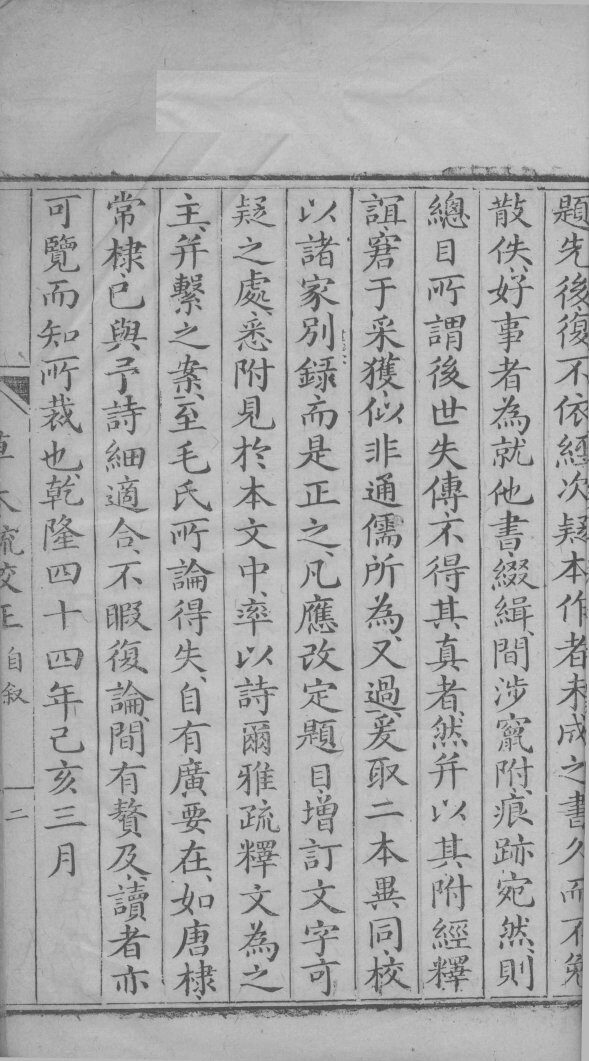 題先後復不依經次疑本作者未成之書久而不免
散佚好事者為就他書綴緝間涉竄附痕跡宛然則
總目所謂後世失傳不得其真者然并以其附經釋
誼窘于采獲似非通儒所為又過爰取二本異同校
以諸家別録而是正之凡應改定題目增訂文字可
疑之處悉附見於本文中率以詩爾雅疏釋文為之
主并繫之案至毛氏所論得失自有廣要在如唐棣
常棣已與予詩細適合不暇復論間有贅及讀者亦
可覽而知所裁也乾隆四十四年己亥三月
草木疏校正 自叙 二